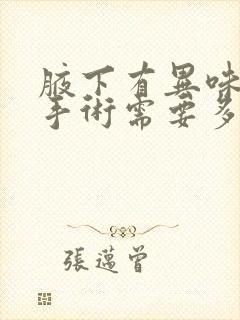 腋下有異味
手術需要多
張邁曾